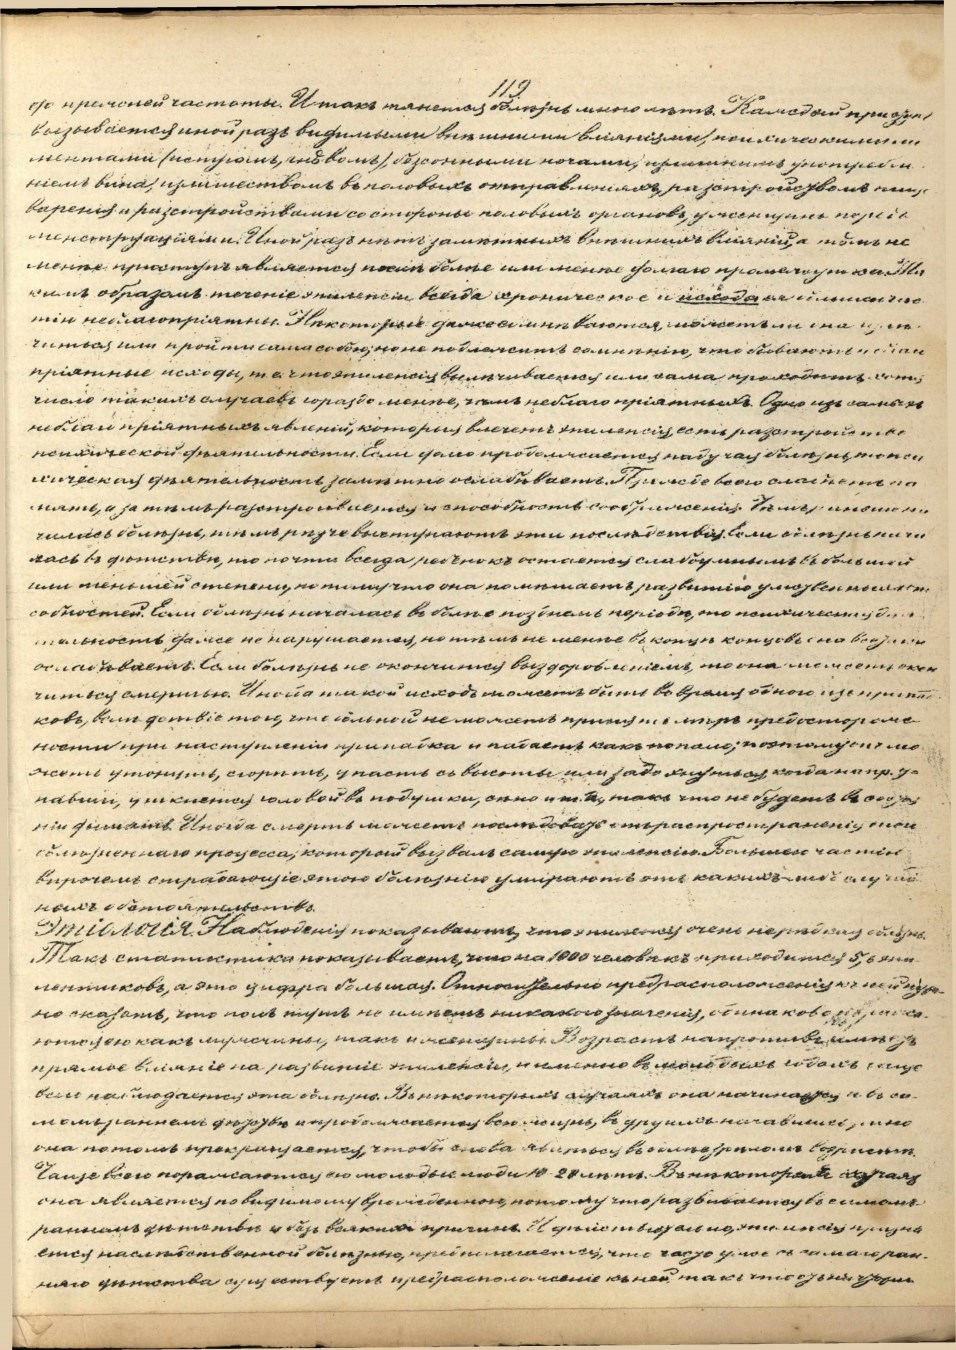 119
до прежней частоты. И такъ тянется болѣзнь много лѣтъ. Каждый
вызывается иной разъ видимыми внѣшними вліяніями, психическими
ментами (испугомъ, гнѣвомъ), безсонными ночами, излишнимъ употребле-
ніемъ вина, излишествомъ въ половыхъ отправленіяхъ, разстройствомъ пище-
варенія и разстройствами со стороны половыхъ органовъ, у женщинъ
менструаціями. Иной разъ нѣтъ замѣтныхъ внѣшнихъ вліяній, а тѣмъ не
менѣе приступъ является послѣ болѣе или менѣе долгаго промежутка. Та-
кимъ образомъ теченіе эпилепсіи всегда хроническое и исхода ея
тію неблагопріятны. Нѣкоторые даже сомнѣваются, можетъ ли она излѣ-
читься или пройти сама собою, но не подлежитъ сомнѣнію, что бываютъ и благо
пріятные исходы, т.е. что эпилепсія вылѣчивается или сама проходитъ, хотя
число такихъ случаевъ гораздо менѣе, чѣмъ неблагопріятныхъ. Одно изъ самыхъ
неблагопріятныхъ явленій, которыя влечетъ эпилепсія, есть разстройство
психической дѣятельности. Если долго продолжается падучая болѣзнь, то пси
хическая дѣятельность замѣтно ослабѣваетъ. Прежде всего слабѣетъ па
мять, а затѣмъ разстраивается и способность соображенія. Чѣмъ
чилась болѣзнь, тѣмъ рѣзче выступаютъ эти послѣдствія. Если болѣзнь нача
лась въ дѣтствѣ, то почти всегда ребенокъ остается слабоумнымъ въ большей
или меньшей степени, потому что она помѣшаетъ развитію умственныхъ спо
собностей. Если болѣзнь началась въ болѣе позднемъ періодѣ, то психическая дѣя
тельность даже не нарушается, но тѣмъ не менѣе въ концѣ концовъ она
ослабѣваетъ. Если болѣзнь не окончится выздоровленіемъ, то она можетъ окон
читься смертью. Иногда такой исходъ можетъ быть во время одного изъ припад-
ковъ, вслѣдствіе того, что больной не можетъ принять мѣръ предосторож
ности при наступленіи припадка и падаетъ какъ попало; поэтому онъ мо
жетъ утонуть, сгорѣть, упасть съ высоты или задохнуться, когда напр. у-
павши, уткнется головой въ подушки, сѣно и т.п., такъ что не будетъ въ состоя
ніи дышать. Иногда смерть можетъ послѣдовать отъ распространенія того
болѣзненнаго процесса, который вызвалъ самую эпилепсію. Большею частію
впрочемъ страдающіе этою болѣзнію умираютъ отъ какихъ-либо случай
ныхъ обстоятельствъ.
Этіологія. Наблюденія показываютъ, что эпилепсія очень нерѣдкая болѣзнь.
Такъ статистика показываетъ, что на 1000 человѣкъ приходится 5, 6 эпи-
лептиковъ, а это цифра большая. Относительно предрасположенія къ ней нуж-
но сказать, что полъ тутъ не имѣетъ никакого значенія, одинаково
ются ею какъ мужчины, такъ и женщины. Возрастъ напротивъ имѣетъ
прямое вліяніе на развитіе эпилепсіи, и именно въ молодыхъ годахъ чаще
всего наблюдается эта болѣзнь. Въ нѣкоторыхъ случаяхъ она начинается и въ са-
момъ раннемъ дѣтствѣ и продолжается всю жизнь, въ другихъ начавшись рано
она потомъ прекращается, чтобы снова явиться въ болѣе зрѣломъ возрастѣ.
Чаще всего поражаются ею молодые люди 10-20 лѣтъ. Въ нѣкоторыхъ случаяхъ
она является повидимому врожденною, потому что развивается въ самомъ
раннемъ дѣтствѣ и безъ всякихъ причинъ. И дѣйствительно, эпилепсія призна
ется наслѣдственной болѣзнью, предполагается, что часто уже съ самаго ран-
няго дѣтства существуетъ предрасположеніе къ ней, такъ что